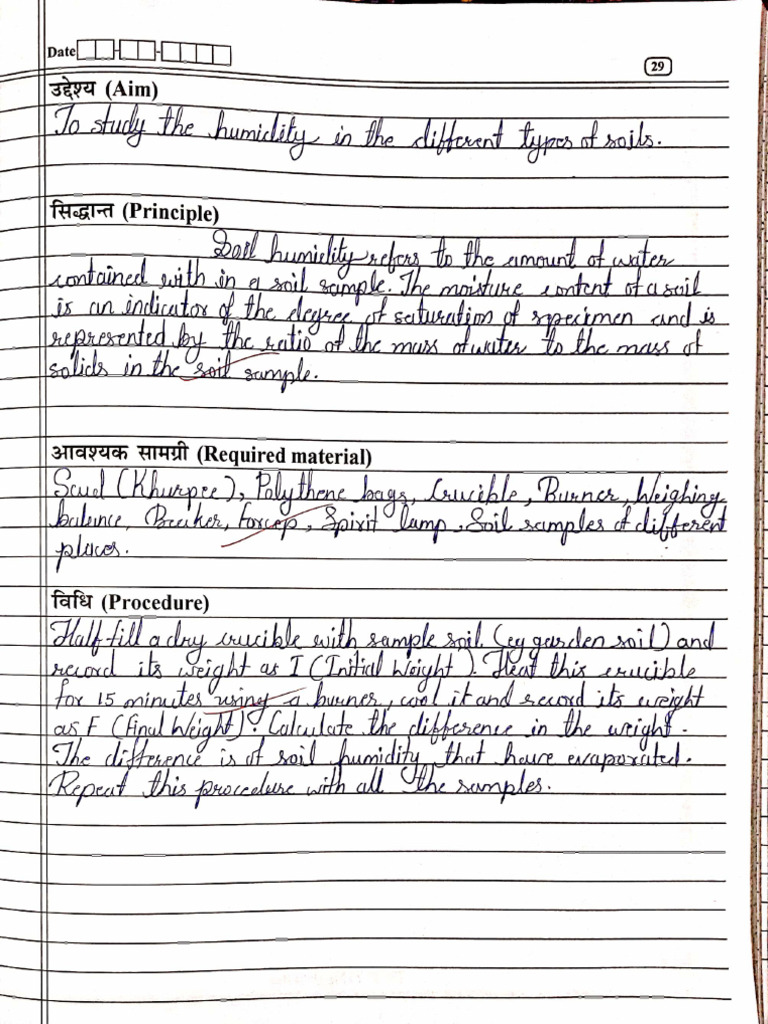 Date
29
उद्देश्य (Aim)
To study the humidity in the different types of soils.
सिद्धान्त (Principle)
Soil humidity refers to the amount of water
contained with in a soil sample. The moisture content of a soil
is an indicator of the degree of saturation of specimen and is
represented by the ratio of the mass of water to the mass of
solids in the soil sample.
आवश्यक सामग्री (Required material)
(Khurpee), Polythene bags, Crucible, Burner, Weighing
balance, Beaker, Forcep, Spirit lamp, Soil samples of different
places.
विधि (Procedure)
Half fill a dry crucible with sample soil. (eg garden soil) and
record its weight as I (Initial Weight). Heat this crucible
for 15 minutes using a burner, cool it and record its weight
as F (Final Weight). Calculate the difference in the weight.
The difference is of soil humidity that have evaporated.
Repeat this procedure with all the samples.